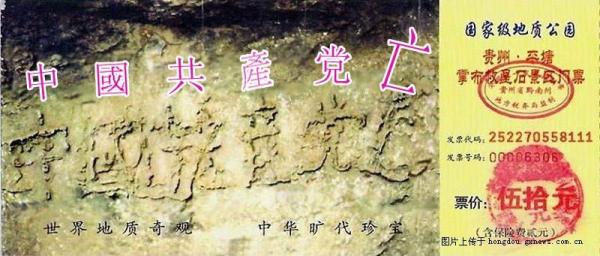 中國共產党亡
世界地质奇观 中华旷代珍宝
国家级地质公园
贵州·平塘
掌布救星石景区门票
贵州省黔南州
地方税务局监制
发票代码: 252270558111
发票号码: 00006306
票价: 伍拾元
(含保险费贰元)
图片上传于 hongdou.gxnews.com.cn